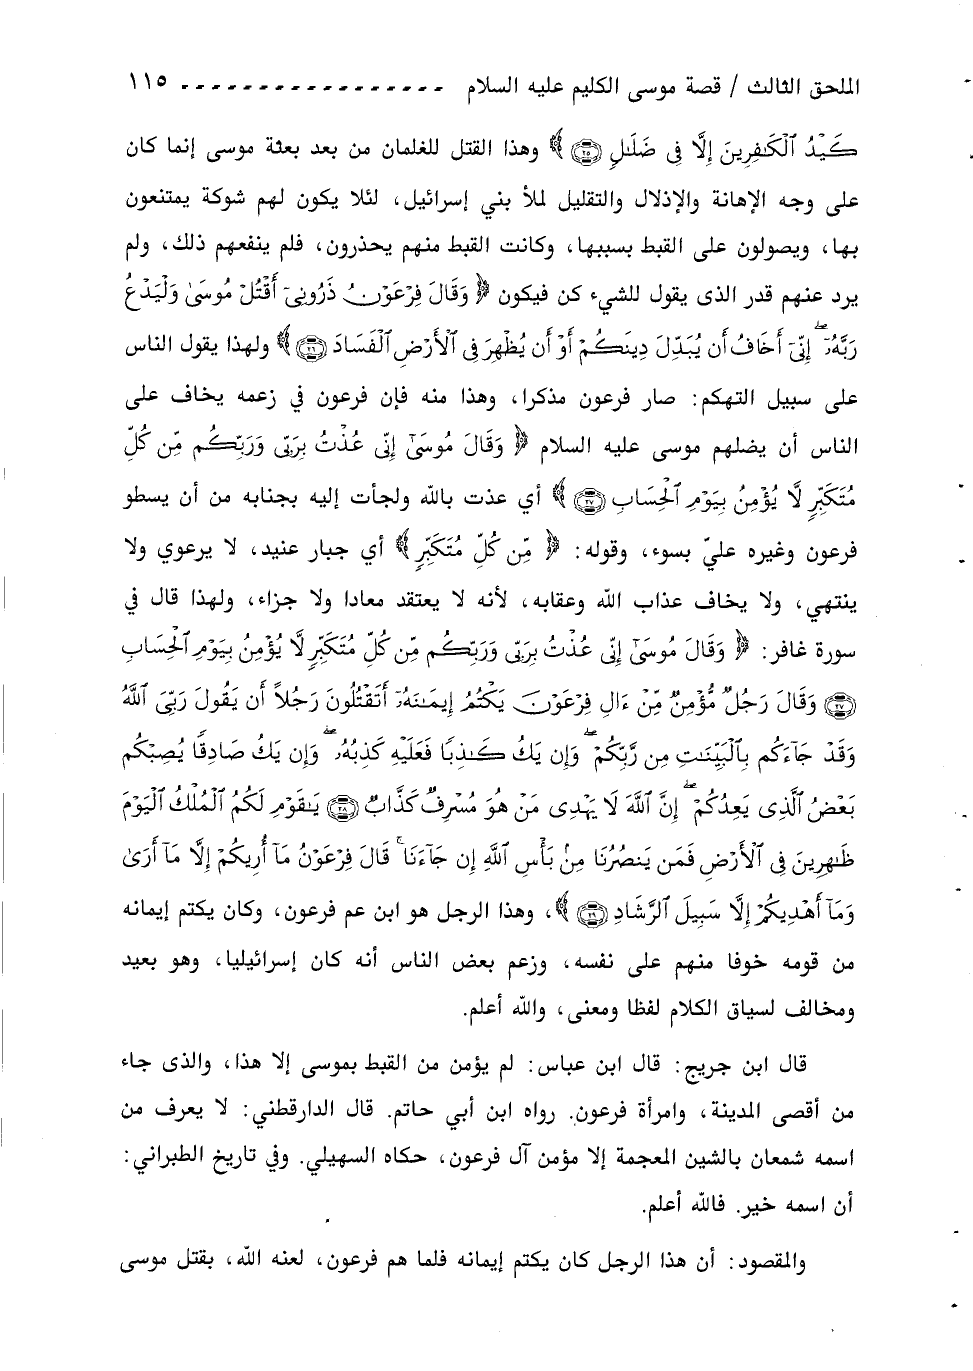 الملحق الثالث / قصة موسى الكليم عليه السلام ـ ـ ـ ـ ـ ـ ـ ـ ـ ـ ـ ـ ـ ـ ـ ـ ـ ١١٥
كَيْدُ ٱلْكَـٰفِرِينَ إِلَّا فِى ضَلَـٰلٍ ﴿٢٥﴾ ﴾ وهذا القتل للغلمان من بعد بعثة موسى إنما كان
على وجه الإهانة والإذلال والتقليل لملأ بني إسرائيل، لئلا يكون لهم شوكة يمتنعون
بها، ويصولون على القبط بسببها، وكانت القبط منهم يحذرون، فلم ينفعهم ذلك، ولم
يرد عنهم قدر الذى يقول للشيء كن فيكون ﴿ وَقَالَ فِرْعَوْنُ ذَرُونِىٓ أَقْتُلْ مُوسَىٰ وَلْيَدْعُ
رَبَّهُۥٓ ۖ إِنِّىٓ أَخَافُ أَن يُبَدِّلَ دِينَكُمْ أَوْ أَن يُظْهِرَ فِى ٱلْأَرْضِ ٱلْفَسَادَ ﴿٢٦﴾ ﴾ ولهذا يقول الناس
على سبيل التهكم: صار فرعون مذكرا، وهذا منه فإن فرعون في زعمه يخاف على
الناس أن يضلهم موسى عليه السلام ﴿ وَقَالَ مُوسَىٰٓ إِنِّى عُذْتُ بِرَبِّى وَرَبِّكُم مِّن كُلِّ
مُتَكَبِّرٍ لَّا يُؤْمِنُ بِيَوْمِ ٱلْحِسَابِ ﴿٢٧﴾ ﴾ أي عذت بالله ولجأت إليه بجنابه من أن يسطو
فرعون وغيره عليّ بسوء، وقوله: ﴿ مِّن كُلِّ مُتَكَبِّرٍ ﴾ أي جبار عنيد، لا يرعوي ولا
ينتهي، ولا يخاف عذاب الله وعقابه، لأنه لا يعتقد معادا ولا جزاء، ولهذا قال في
سورة غافر: ﴿ وَقَالَ مُوسَىٰٓ إِنِّى عُذْتُ بِرَبِّى وَرَبِّكُم مِّن كُلِّ مُتَكَبِّرٍ لَّا يُؤْمِنُ بِيَوْمِ ٱلْحِسَابِ
﴿٢٧﴾ وَقَالَ رَجُلٌ مُّؤْمِنٌ مِّنْ ءَالِ فِرْعَوْنَ يَكْتُمُ إِيمَـٰنَهُۥٓ أَتَقْتُلُونَ رَجُلًا أَن يَقُولَ رَبِّىَ ٱللَّهُ
وَقَدْ جَآءَكُم بِٱلْبَيِّنَـٰتِ مِن رَّبِّكُمْ ۖ وَإِن يَكُ كَـٰذِبًا فَعَلَيْهِ كَذِبُهُۥ ۖ وَإِن يَكُ صَادِقًا يُصِبْكُم
بَعْضُ ٱلَّذِى يَعِدُكُمْ ۖ إِنَّ ٱللَّهَ لَا يَهْدِى مَنْ هُوَ مُسْرِفٌ كَذَّابٌ ﴿٢٨﴾ يَـٰقَوْمِ لَكُمُ ٱلْمُلْكُ ٱلْيَوْمَ
ظَـٰهِرِينَ فِى ٱلْأَرْضِ فَمَن يَنصُرُنَا مِنۢ بَأْسِ ٱللَّهِ إِن جَآءَنَا ۚ قَالَ فِرْعَوْنُ مَآ أُرِيكُمْ إِلَّا مَآ أَرَىٰ
وَمَآ أَهْدِيكُمْ إِلَّا سَبِيلَ ٱلرَّشَادِ ﴿٢٩﴾ ﴾، وهذا الرجل هو ابن عم فرعون، وكان يكتم إيمانه
من قومه خوفا منهم على نفسه، وزعم بعض الناس أنه كان إسرائيليا، وهو بعيد
ومخالف لسياق الكلام لفظا ومعنى، والله أعلم.
قال ابن جريج: قال ابن عباس: لم يؤمن من القبط بموسى إلا هذا، والذى جاء
من أقصى المدينة، وامرأة فرعون. رواه ابن أبي حاتم. قال الدارقطني: لا يعرف من
اسمه شمعان بالشين المعجمة إلا مؤمن آل فرعون، حكاه السهيلي. وفي تاريخ الطبراني:
أن اسمه خير. فالله أعلم.
والمقصود: أن هذا الرجل كان يكتم إيمانه فلما هم فرعون، لعنه الله، بقتل موسى